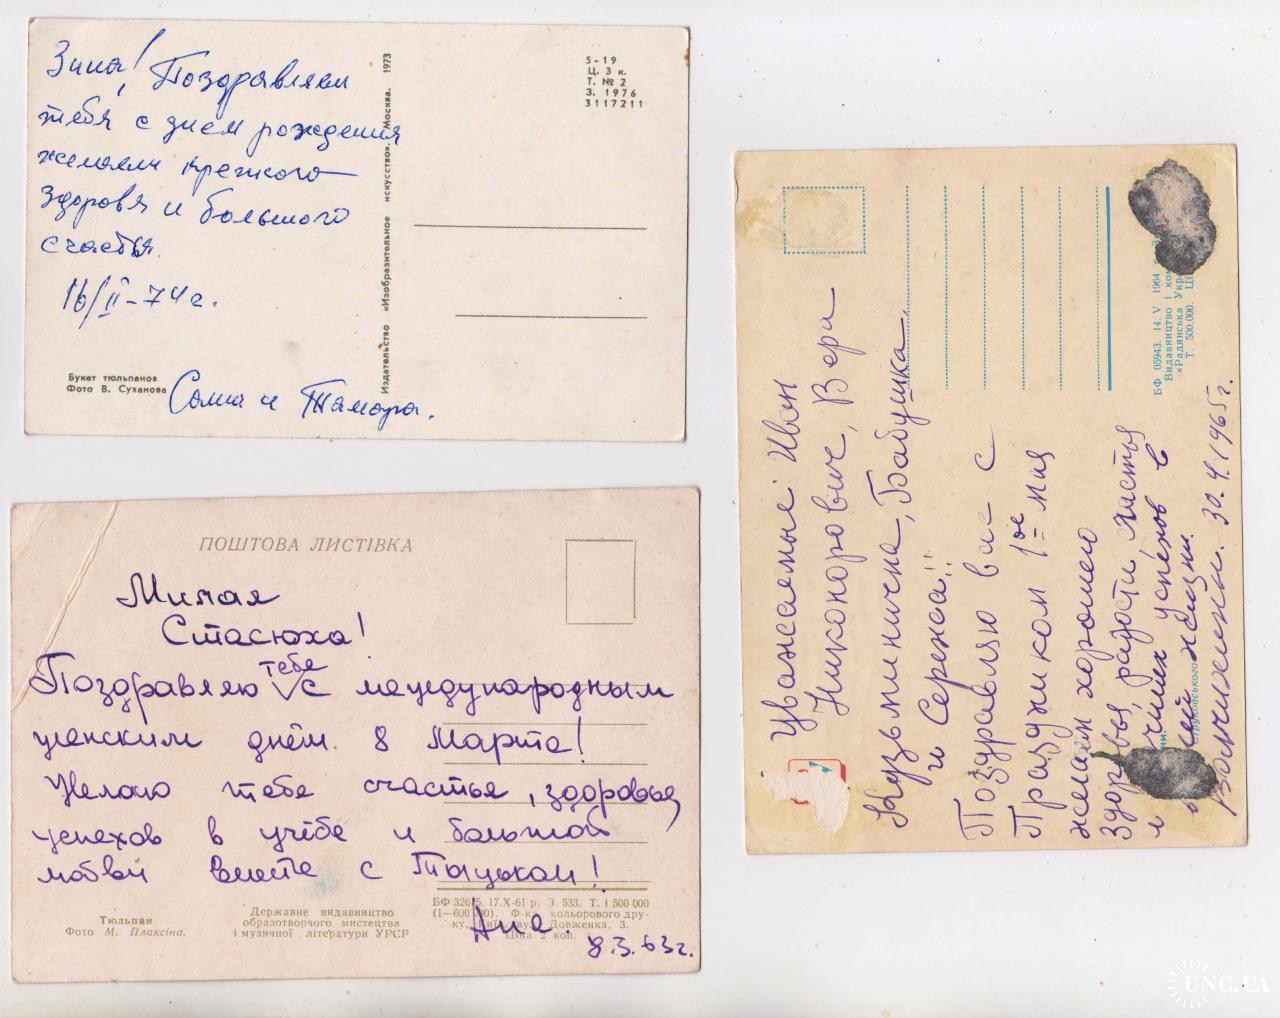 Зина! Поздравляем
тебя с днем рождения
желаем крепкого
здоровя и большого
счастья.
16/II-74г.
Саша и Тамара.
Букет тюльпанов
Фото В. Суханова
Издательство «Изобразительное искусство». Москва. 1973
5-19
Ц. 3 к.
Т. № 2
З. 1976
3117211
ПОШТОВА ЛИСТІВКА
Милая
Стасюха!
Поздравляю тебе с международным
женским днём 8 Марта!
Желаю тебе счастья, здоровья,
успехов в учёбе и большой
любви вместе с
Аня.
8.3.63г.
Тюльпан
Фото М. Плаксіна.
Державне видавництво
образотворчого мистецтва
і музичної літератури УРСР
БФ 326 5. 17.X-61 р. З. 533. Т. 1 500 000
(1—600 00). Ф-ка кольорового дру-
ку, Київ, вул. Довженка, 3.
Ціна 2 коп.
Уважаемые Иван
Никонорович, Вера
Кузьминична, Бабушка
и Сережа!!
Поздравляю вас с
Праздником 1ое мая
желаем хорошего
здоровья радости счастья
и успехов в
жизни.
30.4.1965г.
БФ 05943. 14. V. 1964 р. З
Видавництво і ко
«Радянська Укр
Т. 500.000. Ці
UNC.UA